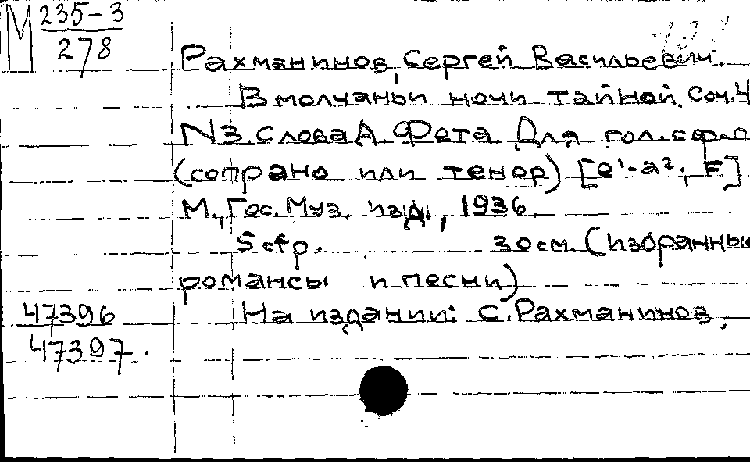 М 235-3
278
Рахманинов, Сергей Васильевич.
В молчаньи ночи тайной. Соч. 4
N3. Слова А. Фета. Для гол. с ф.-п
(сопрано или тенор) [e¹-a²; F]
М., Гос. Муз. изд., 1936.
5 стр. 30 см. (избранные
романсы и песни)
47396
На издании: С. Рахманинов,
47397.